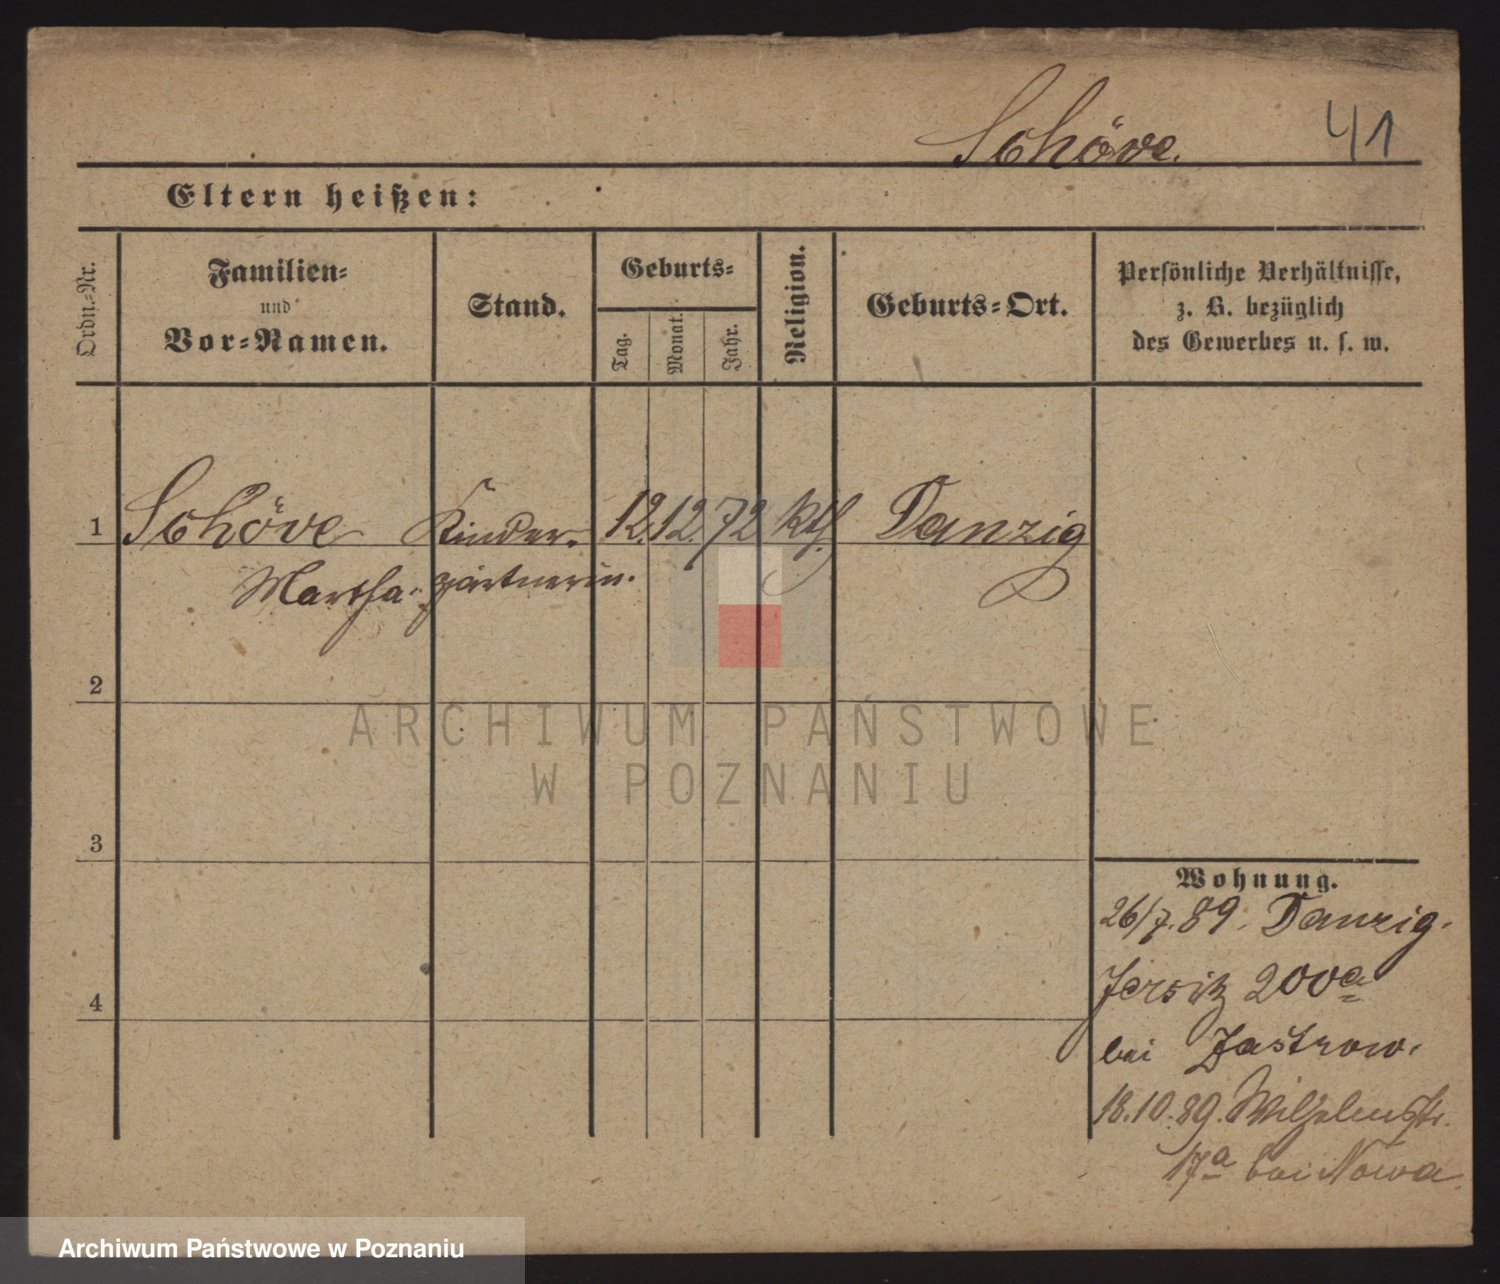 Schöve. 41
Eltern heißen:
Ordn.=Nr.
Familien=
und
Vor=Namen.
Stand.
Geburts=
Tag.
Monat.
Jahr.
Religion.
Geburts=Ort.
Persönliche Verhältnisse,
z. B. bezüglich
des Gewerbes u. s. w.
1 Schöve Kinder- 12. 12. 72 kth. Danzig
Martha. gärtnerin.
2
ARCHIWUM PAŃSTWOWE
W POZNANIU
3
Wohnung.
26/7. 89. Danzig.
4
Jersitz 200a
bei Zastrow.
18.10.89. Wilhelmstr.
17a bei Nowa
Archiwum Państwowe w Poznaniu